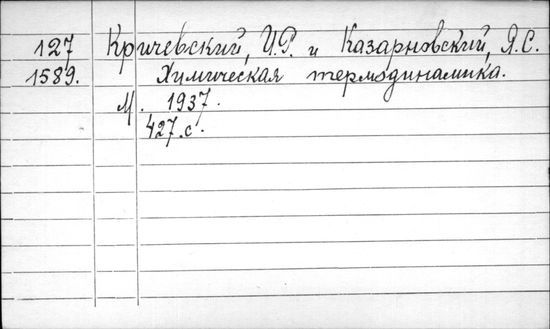 127 Кричевский, И.Р. и Казарновский, Я.С.
1589. Химическая термодинамика.
М. 1937.
427.с.